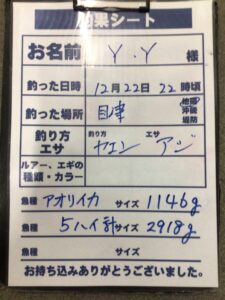 釣果シート
お名前 Y.Y 様
釣った日時 12月22日 22時頃
釣った場所 目津 地磯 沖磯 堤防
釣り方 エサ 釣り方 ヤエン エサ アジ
ルアー、エギの種類・カラー
魚種 アオリイカ サイズ 1146g
魚種 5ハイ計 サイズ 2918g
魚種 サイズ
お持ち込みありがとうございました。